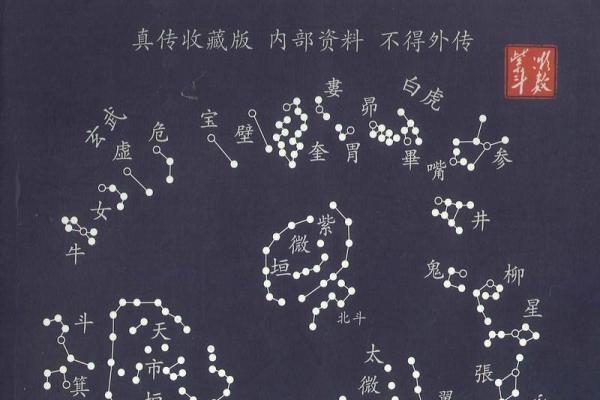 真传收藏版 内部资料 不得外传
紫斗数
玄武
危
虚
女
牛
宝
壁
奎
婁
胃
昴
白虎
畢
嘴
参
井
紫
微
垣
北斗
鬼
柳
星
張
斗
箕
天
市
垣
太
微
翼